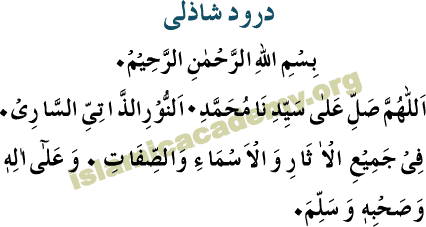 درود شاذلی
بِسْمِ اللهِ الرَّحْمٰنِ الرَّحِيْمِ۰
اَللّٰهُمَّ صَلِّ عَلٰى سَيِّدِنَا مُحَمَّدِ۰ اَلنُّوْرِ الذَّاتِيِّ السَّارِىْ۰
فِىْ جَمِيْعِ الْاٰثَارِ وَالْاَسْمَاءِ وَالصِّفَاتِ۰ وَعَلٰٓى اٰلِهٖ
وَصَحْبِهٖ وَسَلِّمَ۰
islamicacademy.org